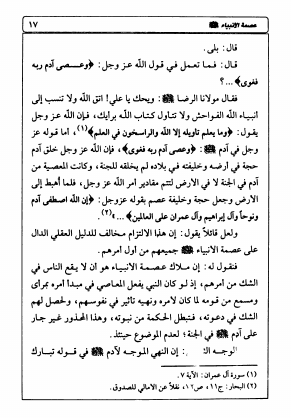 عصمة الانبياء ﷺ ١٧
قال: بلى.
قال: فما تعمل في قول اللّه عز وجل: ﴿وعصى آدم ربه
فغوى﴾...؟
فقال مولانا الرضا ﷺ: ويحك يا علي! اتق اللّه ولا تنسب إلى
انبياء اللّه الفواحش ولا تتأول كتاب اللّه برأيك، فإن اللّه عز وجل
يقول: ﴿وما يعلم تأويله إلا اللّه والراسخون في العلم﴾(١)، أما قوله عز
وجل في آدم ﷺ: ﴿وعصى آدم ربه فغوى﴾، فإن اللّه عز وجل خلق آدم
حجة في أرضه وخليفته في بلاده لم يخلقه للجنة، وكانت المعصية من
آدم في الجنة لا في الارض لتتم مقادير أمر اللّه عز وجل، فلما أهبط إلى
الارض وجعل حجة وخليفة عصم بقوله عزوجل: ﴿إن اللّه اصطفى آدم
ونوحاً وآل إبراهيم وآل عمران على العالمين﴾...»(٢).
ولعل قائلاً يقول: إن هذا الالتزام مخالف للدليل العقلي الدال
على عصمة الانبياء ﷺ جميعهم من أول امرهم.
فنقول له: إن ملاك عصمة الانبياء هو أن لا يقع الناس في
الشك من امرهم، إذ لو كان النبي يفعل المعاصي في مبدأ امره بمرأى
ومسمع من قومه لما كان لامره ونهيه تأثير في نفوسهم، ولحصل لهم
الشك في دعوته، فتبطل الحكمة من نبوته، وهذا المحذور غير جار
على آدم ﷺ في الجنة؛ لعدم الموضوع حينئذ.
الوجه : إن النهي الموجه لآدم ﷺ في قوله تبارك
(١) سورة آل عمران: الآية ٧.
(٢) البحار: ج١١، ص١٢، نقلاً عن الامالي للصدوق.